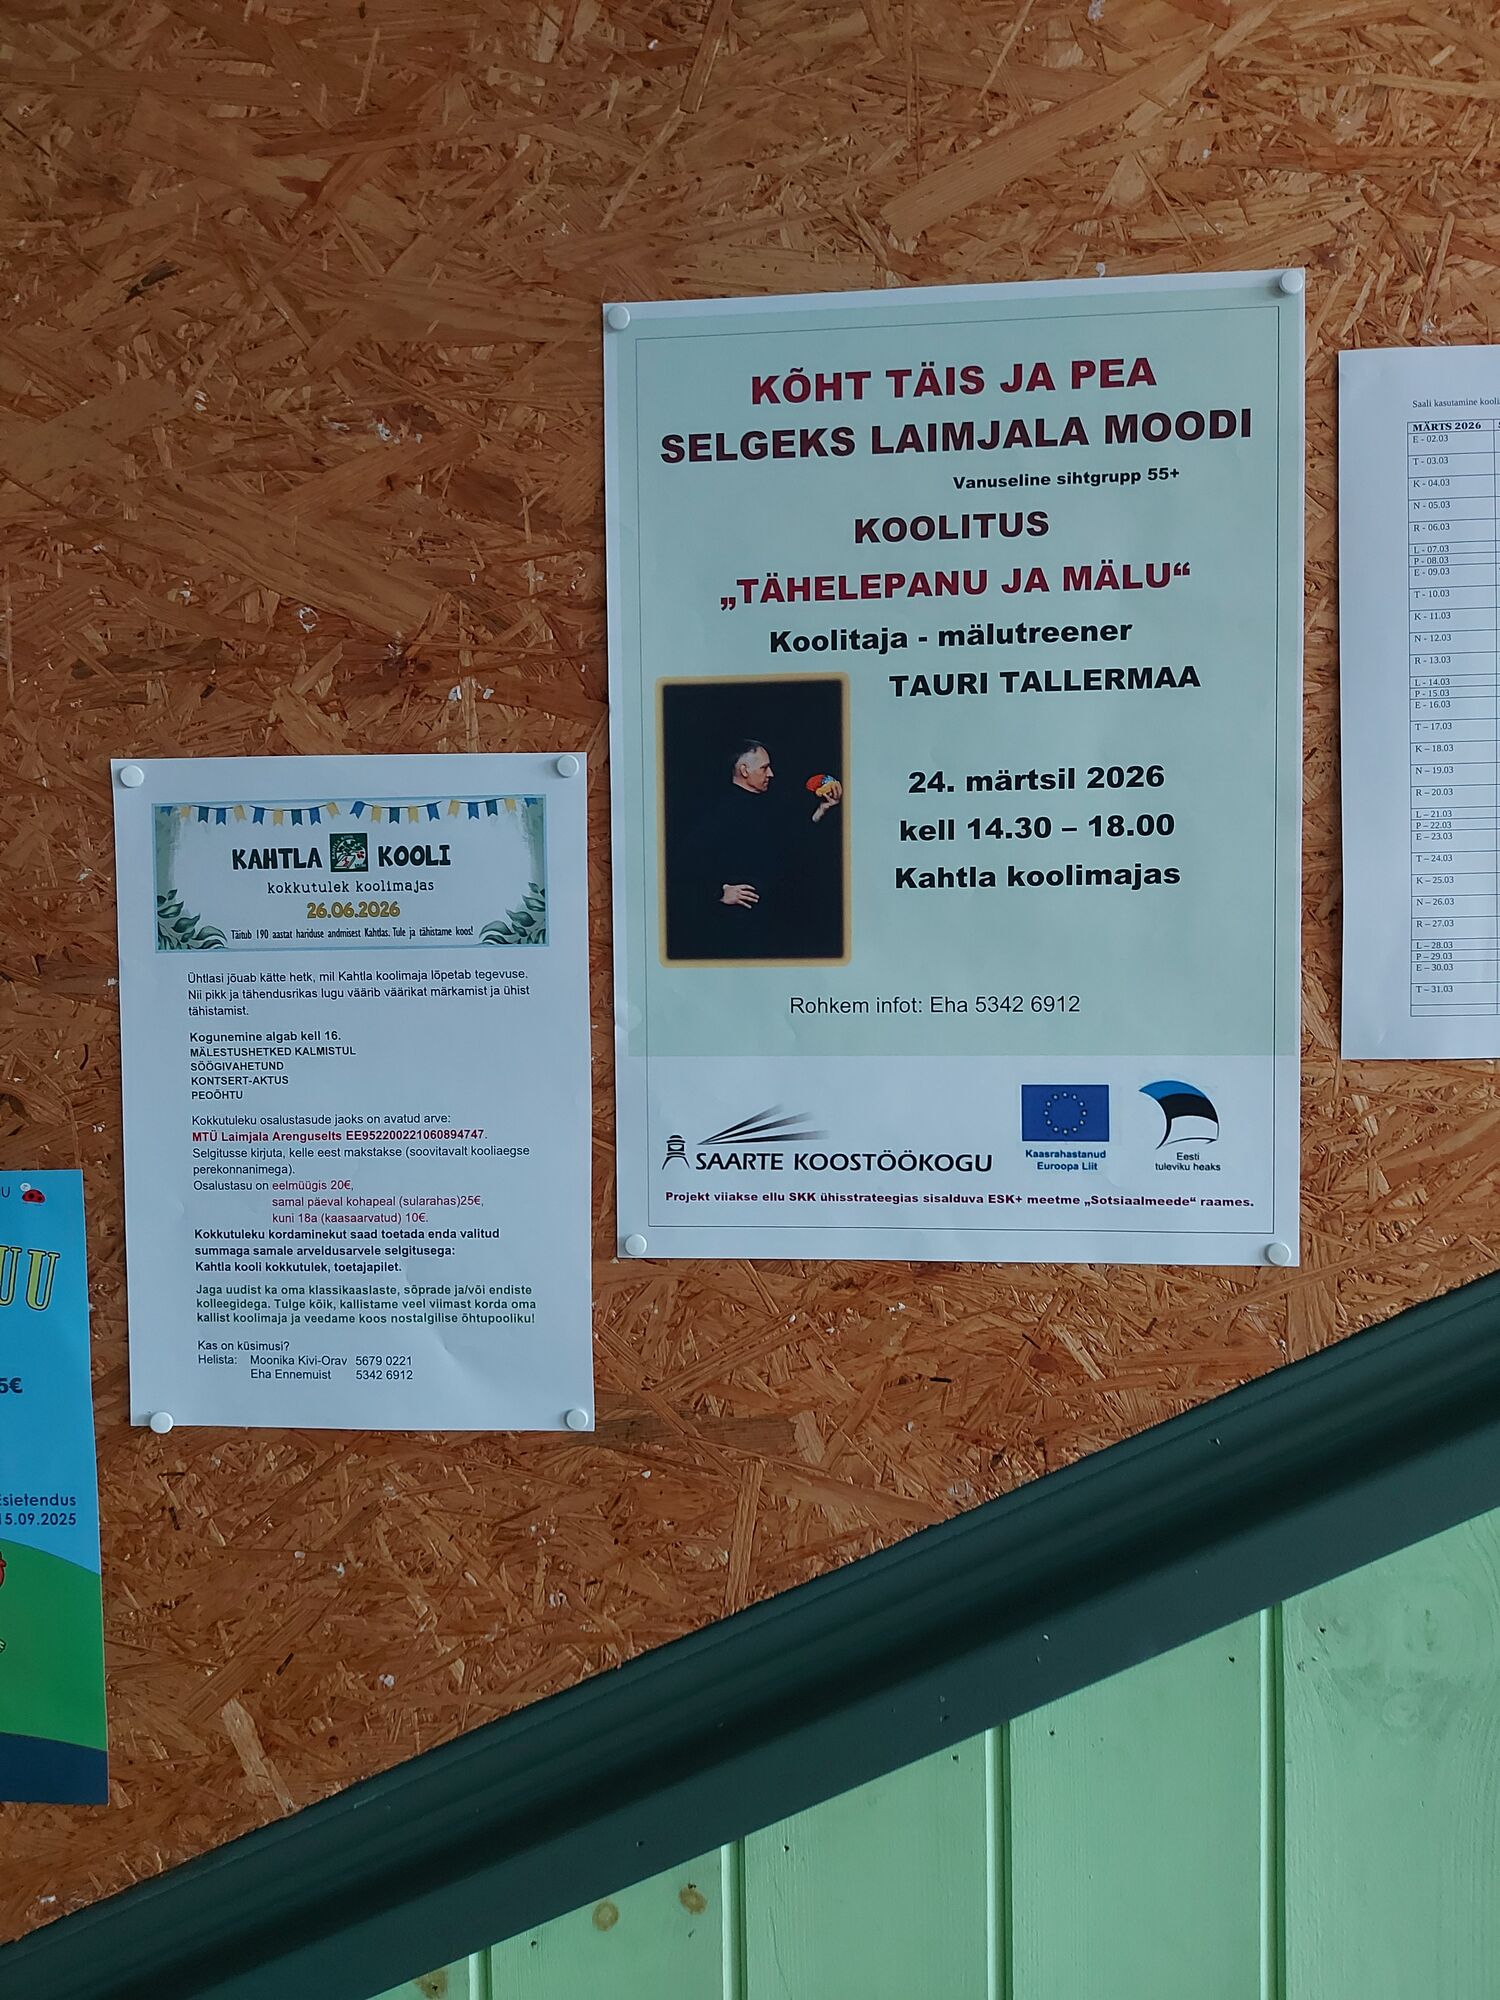 KÕHT TÄIS JA PEA
SELGEKS LAIMJALA MOODI
Vanuseline sihtgrupp 55+
KOOLITUS
„TÄHELEPANU JA MÄLU“
Koolitaja - mälutreener
TAURI TALLERMAA
24. märtsil 2026
kell 14.30 – 18.00
Kahtla koolimajas
Rohkem infot: Eha 5342 6912
SAARTE KOOSTÖÖKOGU
Kaasrahastanud
Euroopa Liit
Eesti
tuleviku heaks
Projekt viiakse ellu SKK ühisstrateegias sisalduva ESK+ meetme „Sotsiaalmeede" raames.
KAHTLA KOOLI
kokkutulek koolimajas
26.06.2026
Täitub 190 aastat hariduse andmisest Kahtlas. Tule ja tähistame koos!
Ühtlasi jõuab kätte hetk, mil Kahtla koolimaja lõpetab tegevuse.
Nii pikk ja tähendusrikas lugu väärib väärikat märkamist ja ühist
tähistamist.
Kogunemine algab kell 16.
MÄLESTUSHETKED KALMISTUL
SÖÖGIVAHETUND
KONTSERT-AKTUS
PEOÕHTU
Kokkutuleku osalustasude jaoks on avatud arve:
MTÜ Laimjala Arenguselts EE952200221060894747.
Selgitusse kirjuta, kelle eest makstakse (soovitavalt kooliaegse
perekonnanimega).
Osalustasu on eelmüügis 20€,
samal päeval kohapeal (sularahas)25€,
kuni 18a (kaasaarvatud) 10€.
Kokkutuleku kordaminekut saad toetada enda valitud
summaga samale arveldusarvele selgitusega:
Kahtla kooli kokkutulek, toetajapilet.
Jaga uudist ka oma klassikaaslaste, sõprade ja/või endiste
kolleegidega. Tulge kõik, kallistame veel viimast korda oma
kallist koolimaja ja veedame koos nostalgilise õhtupooliku!
Kas on küsimusi?
Helista: Moonika Kivi-Orav 5679 0221
Eha Ennemuist 5342 6912
UU
5€
Esietendus
15.09.2025
Saali kasutamine
MÄRTS 2026
E - 02.03
T - 03.03
K - 04.03
N - 05.03
R - 06.03
L - 07.03
P - 08.03
E - 09.03
T - 10.03
K - 11.03
N - 12.03
R - 13.03
L - 14.03
P - 15.03
E - 16.03
T – 17.03
K – 18.03
N – 19.03
R – 20.03
L – 21.03
P – 22.03
E – 23.03
T – 24.03
K – 25.03
N – 26.03
R – 27.03
L – 28.03
P – 29.03
E – 30.03
T – 31.03